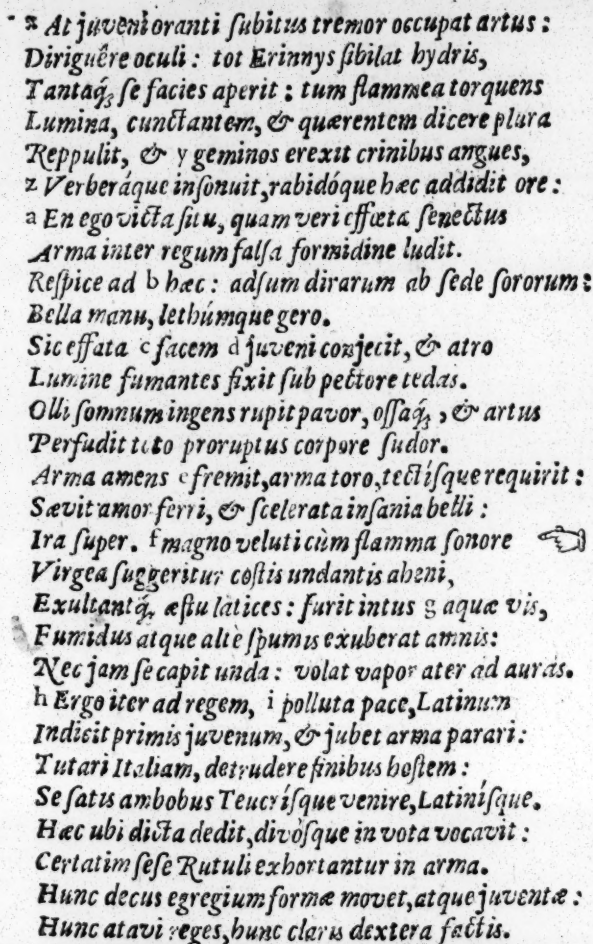 x At juveni oranti ſubitus tremor occupat artus:
Diriguêre oculi: tot Erinnys ſibilat hydris,
Tantaq́ꝫ ſe facies aperit: tum flammea torquens
Lumina, cunctantem, & quærentem dicere plura
Reppulit, & y geminos erexit crinibus angues,
z Verberáque inſonuit, rabidóque hæc addidit ore:
a En ego victa ſitu, quam veri effœta ſenectus
Arma inter regum falſa formidine ludit.
Reſpice ad b hæc: adſum dirarum ab ſede ſororum:
Bella manu, lethúmque gero.
Sic effata c facem d juveni conjecit, & atro
Lumine fumantes fixit ſub pectore tedas.
Olli ſomnum ingens rupit pavor, oſſaq́ꝫ, & artus
Perfudit toto proruptus corpore ſudor.
Arma amens e fremit, arma toro, tectíſque requirit:
Sævit amor ferri, & ſcelerata inſania belli:
Ira ſuper. f magno veluti cùm flamma ſonore ☜
Virgea ſuggeritur coſtis undantis aheni,
Exultantq́ꝫ æſtu latices: furit intus g aquæ vis,
Fumidus atque altè ſpumis exuberat amnis:
Nec jam ſe capit unda: volat vapor ater ad auras.
h Ergo iter ad regem, i polluta pace, Latinum
Indicit primis juvenum, & jubet arma parari:
Tutari Italiam, detrudere finibus hoſtem:
Se ſatis ambobus Teucríſque venire, Latiníſque.
Hæc ubi dicta dedit, divòſque in vota vocavit:
Certatim ſeſe Rutuli exhortantur in arma.
Hunc decus egregium formæ movet, atque juventæ:
Hunc atavi reges, hunc claris dextera factis.